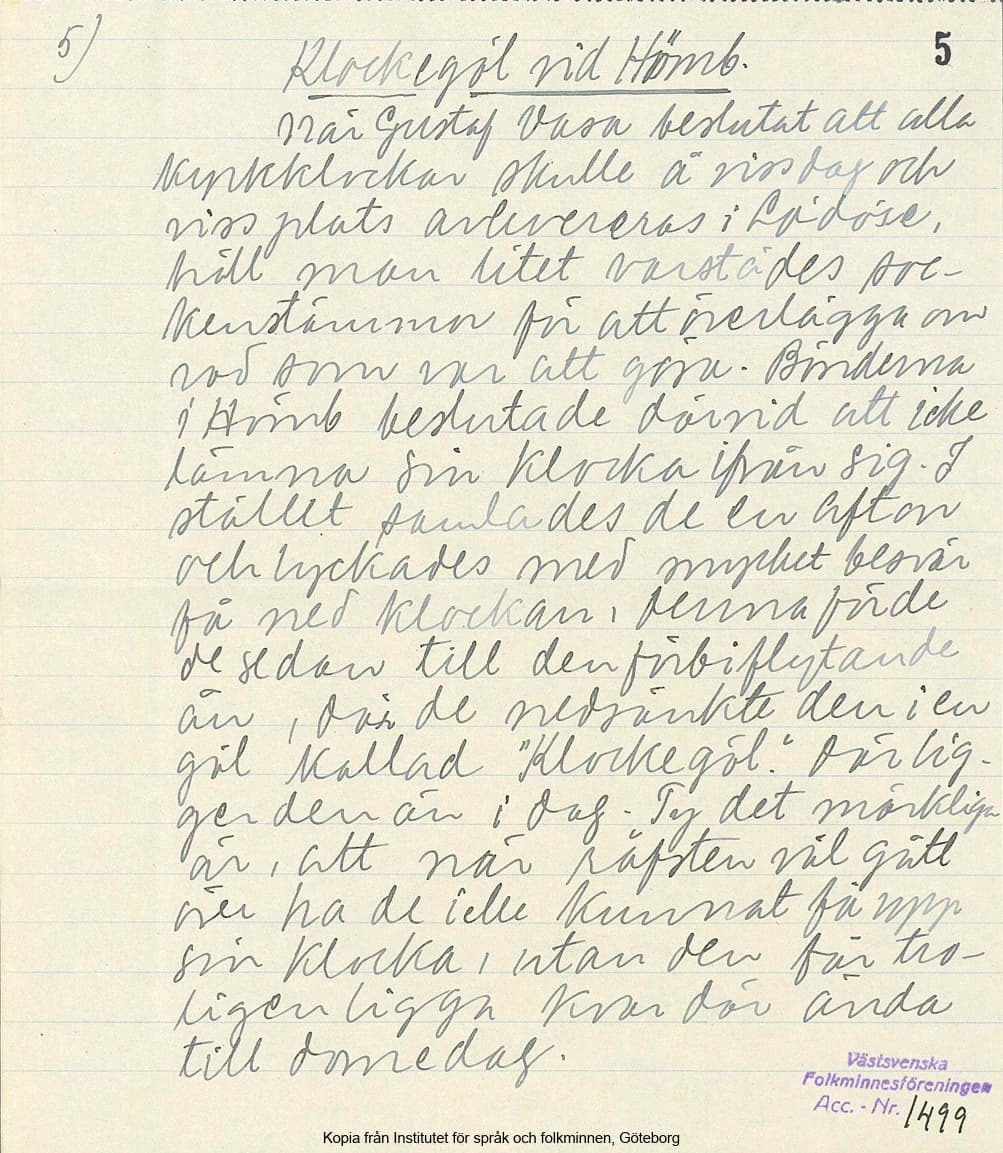 5)
5
Klockegöl vid Hömb.
När Gustaf Vasa beslutat att alla
kyrkklockar skulle å viss dag och
viss plats avlevereras i Lödöse,
höll man litet varstädes soc-
kenstämmor för att överlägga om
vad som var att göra. Bönderna
i Hömb beslutade därvid att icke
lämna sin klocka ifrån sig. I
stället samlades de en afton
och lyckades med mycket besvär
få ned klockan, denna förde
de sedan till den förbiflytande
ån, där de nedsänkte den i en
göl kallad "Klockegöl." Där lig-
ger den än i dag. Ty det märkliga
är, att när räfsten väl gått
över ha de icke kunnat få upp
sin klocka, utan den får tro-
ligen ligga kvar där ända
till domedag.
Västsvenska
Folkminnesföreningen
Acc. - Nr. 1499
Kopia från Institutet för språk och folkminnen, Göteborg